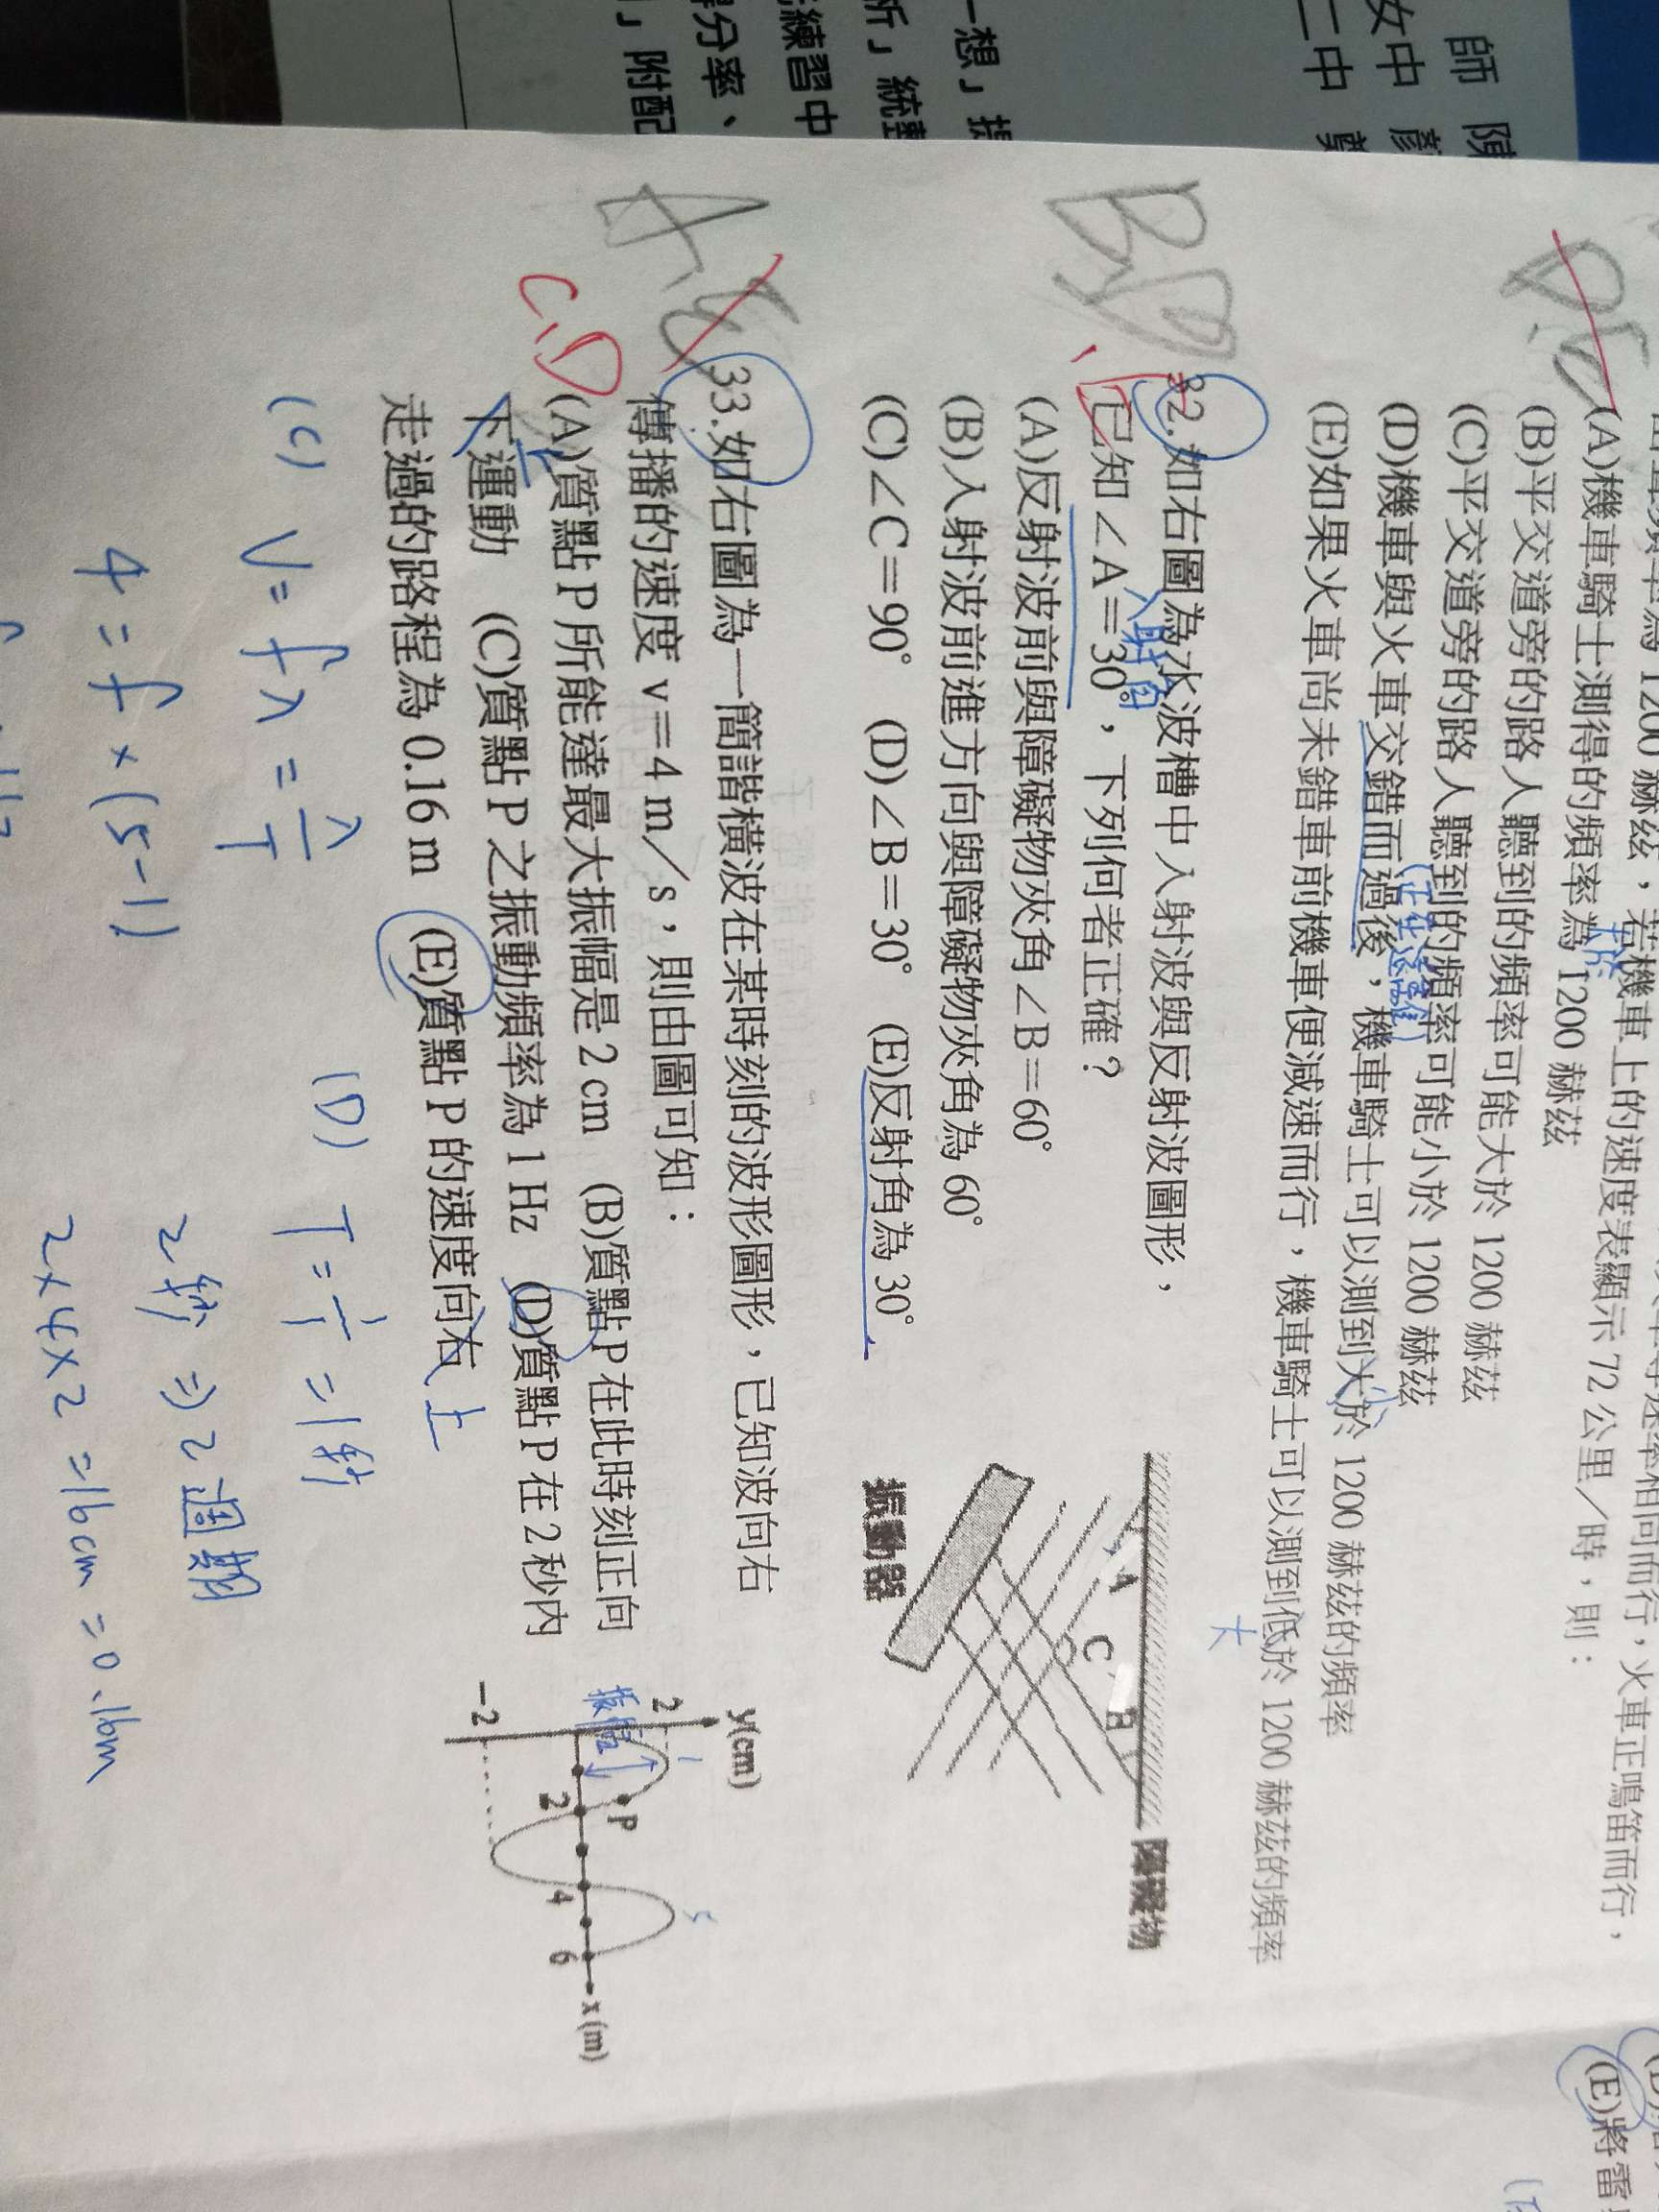 師 陳
女中 彦
二中
一想」
析」統整
練習中
分率、
」附配
(A)機車騎士測得的頻率為 1200 赫茲
(B)平交道旁的路人聽到的頻率可能大於 1200 赫茲
(C)平交道旁的路人聽到的頻率可能小於 1200 赫茲
(D)機車與火車交錯而過後，機車騎士可以測到大於 1200 赫茲的頻率
(E)如果火車尚未錯車前機車便減速而行，機車騎士可以測到低於 1200 赫茲的頻率
大
B,D
32.如右圖為水波槽中入射波與反射波圖形，
入射角
已知∠A＝30°，下列何者正確？
(A)反射波前與障礙物夾角∠B＝60°
(B)入射波前進方向與障礙物夾角為 60°
(C)∠C＝90° (D)∠B＝30° (E)反射角為 30°
A
C
B
障礙物
振動器
C,D
33.如右圖為一簡諧橫波在某時刻的波形圖形，已知波向右
傳播的速度 v＝4 m／s，則由圖可知：
(A)質點 P 所能達最大振幅是 2 cm (B)質點 P 在此時刻正向
下運動 (C)質點 P 之振動頻率為 1 Hz (D)質點 P 在 2 秒內
上
走過的路程為 0.16 m (E)質點 P 的速度向右
上
y(cm)
2
振幅
P
2
4
6
x(m)
−2
1
5
(C) V = fλ = λ/T
4 = f × (5-1)
(D) T = 1/f = 1秒
2秒 ⇒ 2週期
2×4×2 = 16cm = 0.16m
(E)將雷